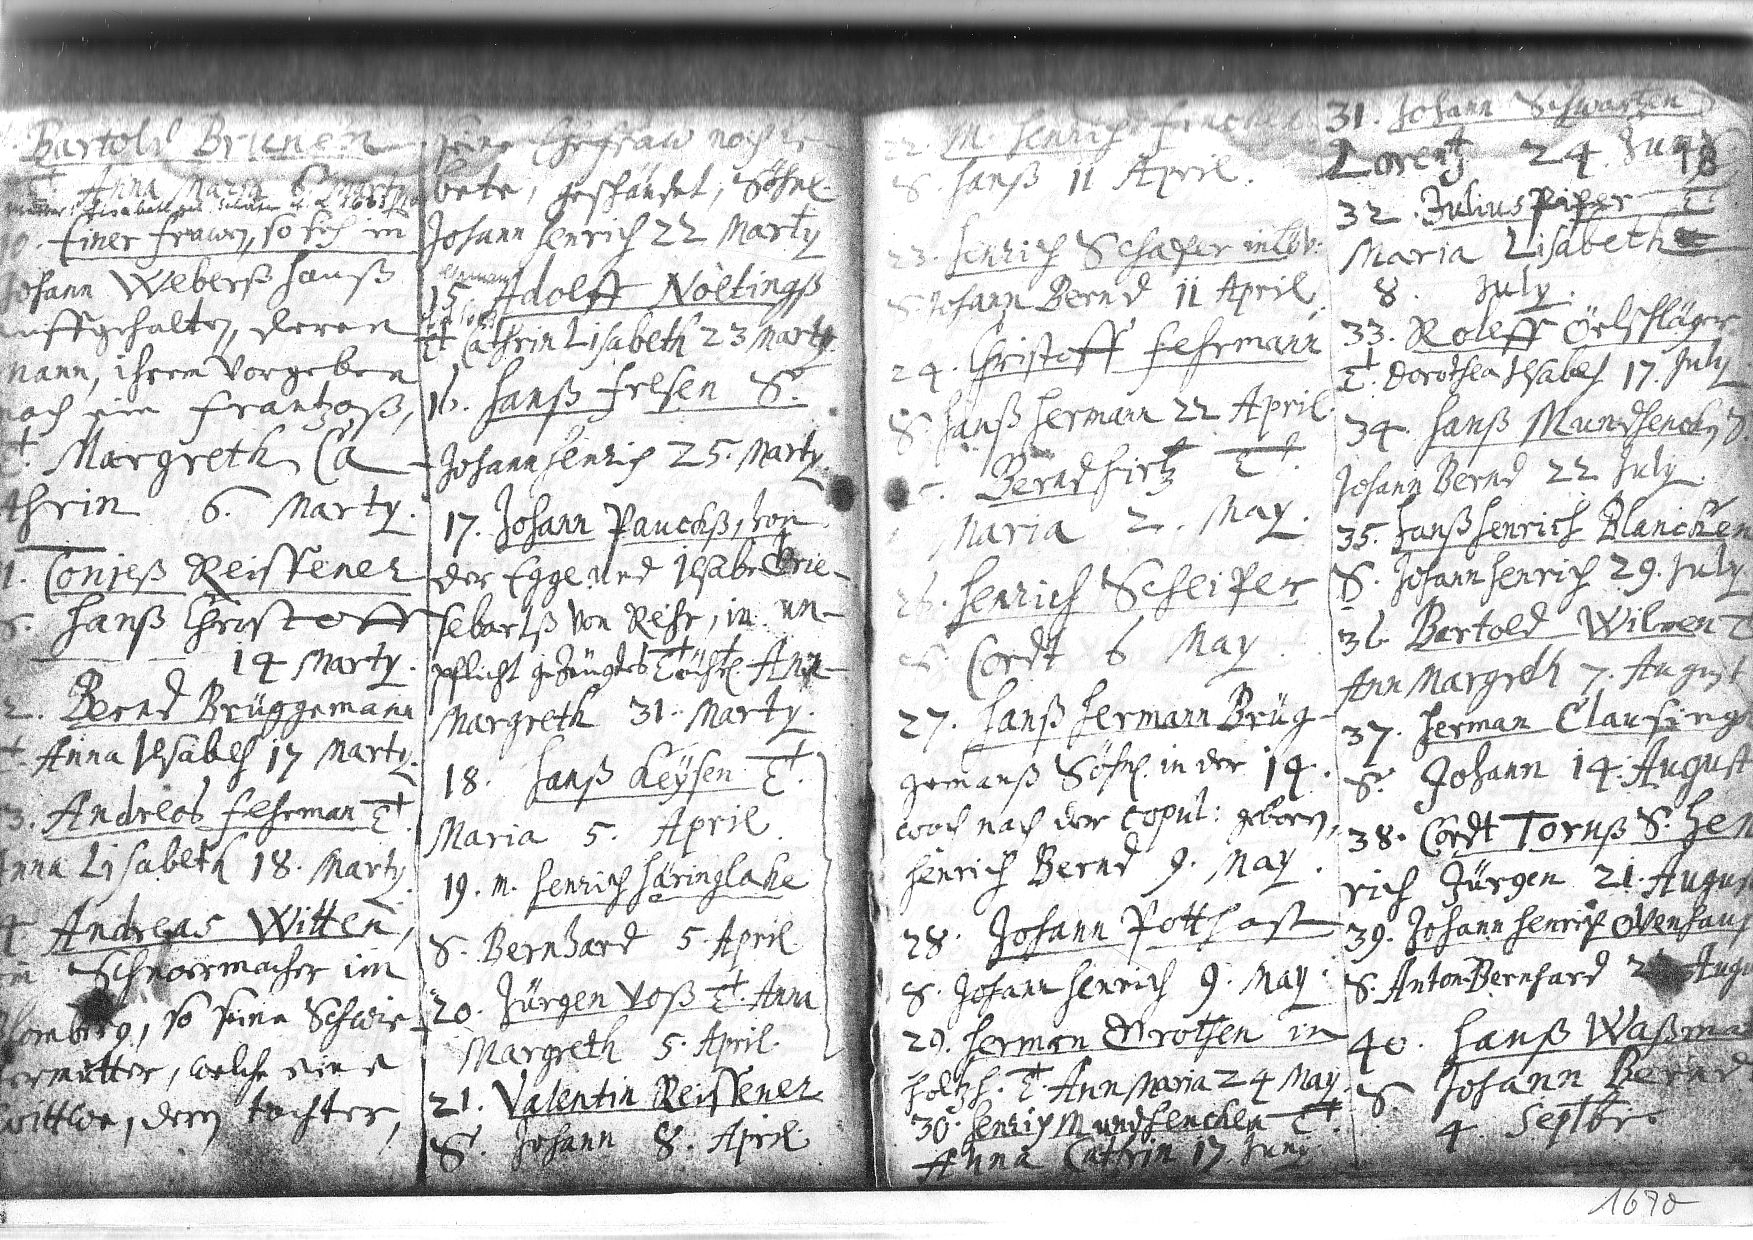 Bartold Brienen
T. Anna Maria 6 Marty
10. Einer frawen, so sich in
Johann Weberß Hauß
auffgehalten, deren
Mann, ihrem Vorgeben
nach ein Frantzoß,
T. Margreth Ca
thrin 6. Marty.
11. Tonieß Reissener
S. Hanß Christoff
14 Marty.
2. Bernd Brüggemann
T. Anna Ilsabeh 17 Marty.
3. Andreas Fehrman T.
Anna Lisabeth 18. Marty
4 Andreas Witten,
ein Schnormacher im
Blomberg, so seine Schwie-
germutter, welche eine
Wittwe, deren tochter,
seine Ehefraw noch le-
bete, geschändet, Söhnl.
Johann Henrich 22 Marty
15 Adolff Nöltingß
T Cathrin Lisabeth 23 Marty.
16. Hanß Felsen S.
Johann Henrich 25. Marty.
17. Johann Pauckß, von
der Egge und Ilsabe Brie-
sebartß von Rehr, in un-
pflicht gezeugtes Töchterl. Ann-
Margreth 31. Marty.
18. Hanß Keysen T.
Maria 5. April.
19. M. Henrich Häringlake
S. Bernhard 5. April
20. Jürgen Voß T. Anna
Margreth 5. April.
21. Valentin Reissener
S. Johann 8. April.
22. M. Henrich
S. Hanß 11 April.
23. Henrich Schaper
S. Johann Bernd 11 April
24. Christoff Fehrmann
S. Hanß Hermann 22 April.
Bernd Firtz T.
Maria 2. May.
26. Henrich Scheiper
S. Cordt 6 May.
27. Hanß Hermann Brüg-
gemanß Söhnl. in der 14.
woch nach der Copul: geboren,
Henrich Bernd 9. May.
28. Johann Potthast
S. Johann Henrich 9. May.
29. Herman Grothen in
Holtzh. T. Ann Maria 24 May.
30. Henrich Mundhencken T.
Anna Cathrin 17. Juny
31. Johann Schwarten
Lorentz 24. Juny
18
32. Julius Piper T.
Maria Lisabeth
8. July.
33. Roleff Öelschläger
T. Dorothea Ilsabeh 17. July
34. Hanß Mundhencken S.
Johann Bernd 22 July
35. Hanß Henrich Blancken
S. Johann Henrich 29. July
36 Bartold Wilmen T
Ann Margreth 7. August
37. Herman Clausings
S. Johann 14. August
38. Cordt Tornß S. Hen
rich Jürgen 21. August
39. Johann Henrich Ovenhauß
S. Anton Bernhard Augu
40. Hanß Waßma
S. Johann Bernd
4. Septbr.
1690